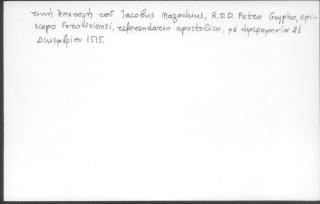 τινὴ ἐπιστολὴ τοῦ Jacobus Mazochius, R.D.D. Petro Grypho, epi-
scopo Foroliviensi, referendario apostolico, μὲ ἡμερομηνία 21
Δεκεμβρίου 1515.